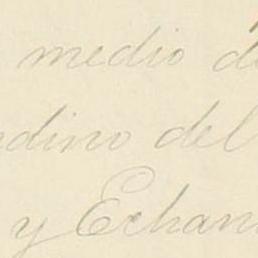 medio d
dino del
y Echan